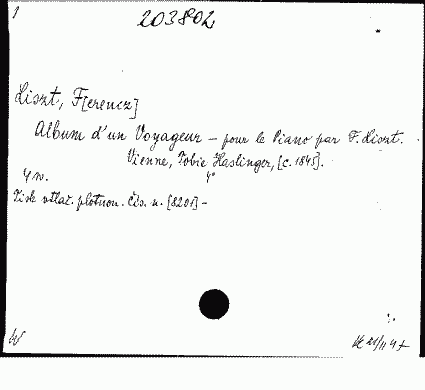 1
203802
Liszt, F[erencz]
Album d'un Voyageur – pour le Piano par F. Liszt.
Vienne, Tobie Haslinger, [c. 1845].
4°
Tisk vtlač. plotnou. čís. n. [8201] –
W